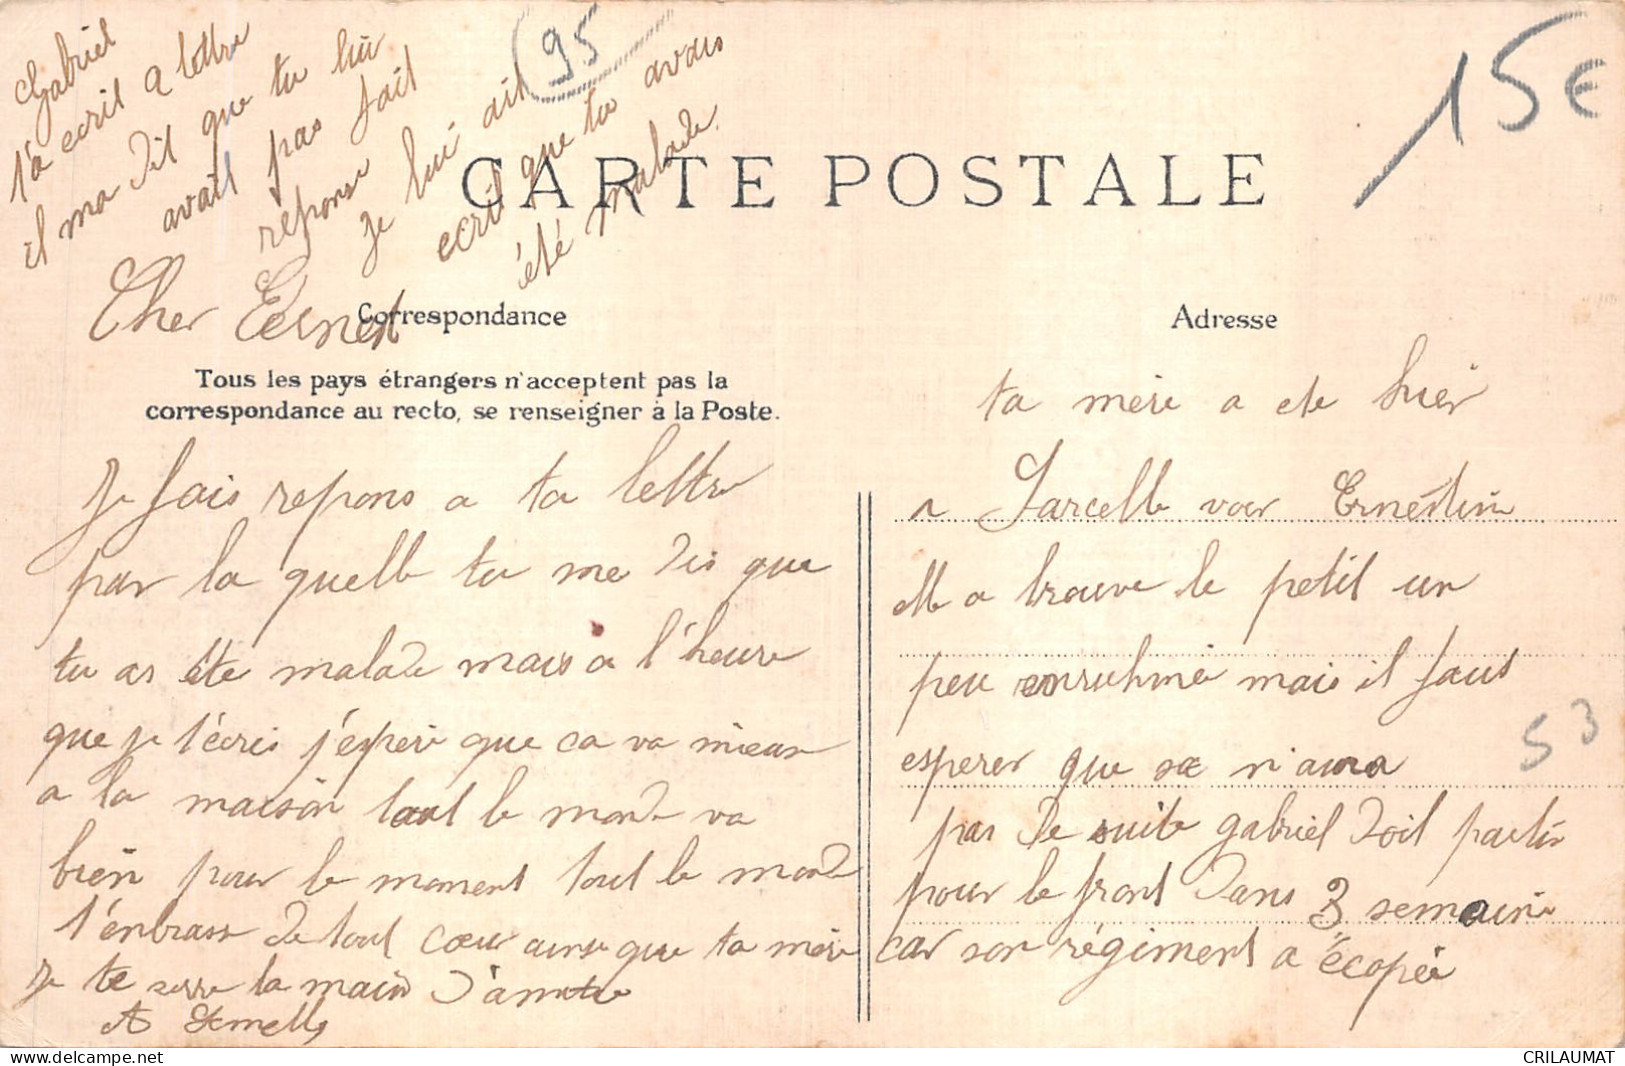 Gabriel
t'a ecrit a lettre
il ma dit que tu lui
avait pas fait
reponse
je lui ait
ecrit que tu avais
été malade.
95
15€
CARTE POSTALE
Cher Ernest
Correspondance
Tous les pays étrangers n'acceptent pas la
correspondance au recto, se renseigner à la Poste.
Je fais repons a ta lettre
par la quelle tu me dis que
tu as été malade mais a l'heure
que je t'écris j'espère que ca va mieux
a la maison tout le monde va
bien pour le moment tout le monde
t'enbrasse de tout cœur ainsi que ta mère
Je te serre la main d'amitie
Adresse
ta mère a ete hier
a Sarcelle voir Ernestine
elle a trouve le petit un
peu enruhmé mais il faut
esperer que sa n'aura
pas de suite gabriel doit partir
pour le front dans 3 semaine
car son régiment a écopée
53
CRILAUMAT